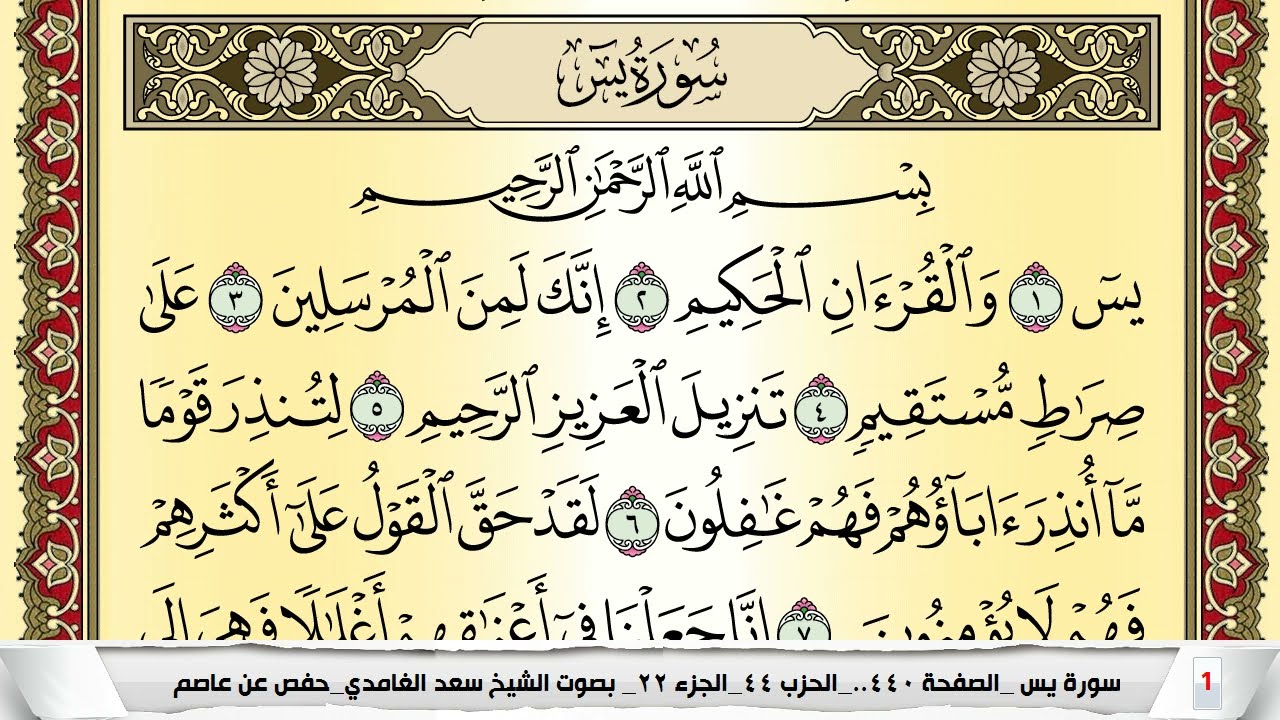 سُورَةُ يسٓ
بِسْمِ ٱللَّهِ ٱلرَّحْمَٰنِ ٱلرَّحِيمِ
يسٓ ١ وَٱلْقُرْءَانِ ٱلْحَكِيمِ ٢ إِنَّكَ لَمِنَ ٱلْمُرْسَلِينَ ٣ عَلَىٰ
صِرَٰطٍ مُّسْتَقِيمٍ ٤ تَنزِيلَ ٱلْعَزِيزِ ٱلرَّحِيمِ ٥ لِتُنذِرَ قَوْمًا
مَّآ أُنذِرَ ءَابَآؤُهُمْ فَهُمْ غَٰفِلُونَ ٦ لَقَدْ حَقَّ ٱلْقَوْلُ عَلَىٰٓ أَكْثَرِهِمْ
فَهُمْ لَا يُؤْمِنُونَ ٧ إِنَّا جَعَلْنَا فِىٓ أَعْنَٰقِهِمْ أَغْلَٰلًا فَهِىَ إِلَى
سورة يس _الصفحة ٤٤٠.._الحزب ٤٤_الجزء ٢٢_ بصوت الشيخ سعد الغامدي_حفص عن عاصم
1